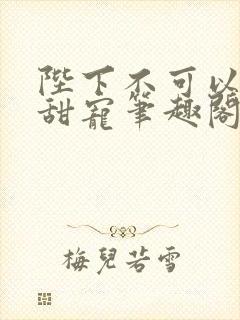 陛下不可以
甜寵筆趣閣
梅兒若雪